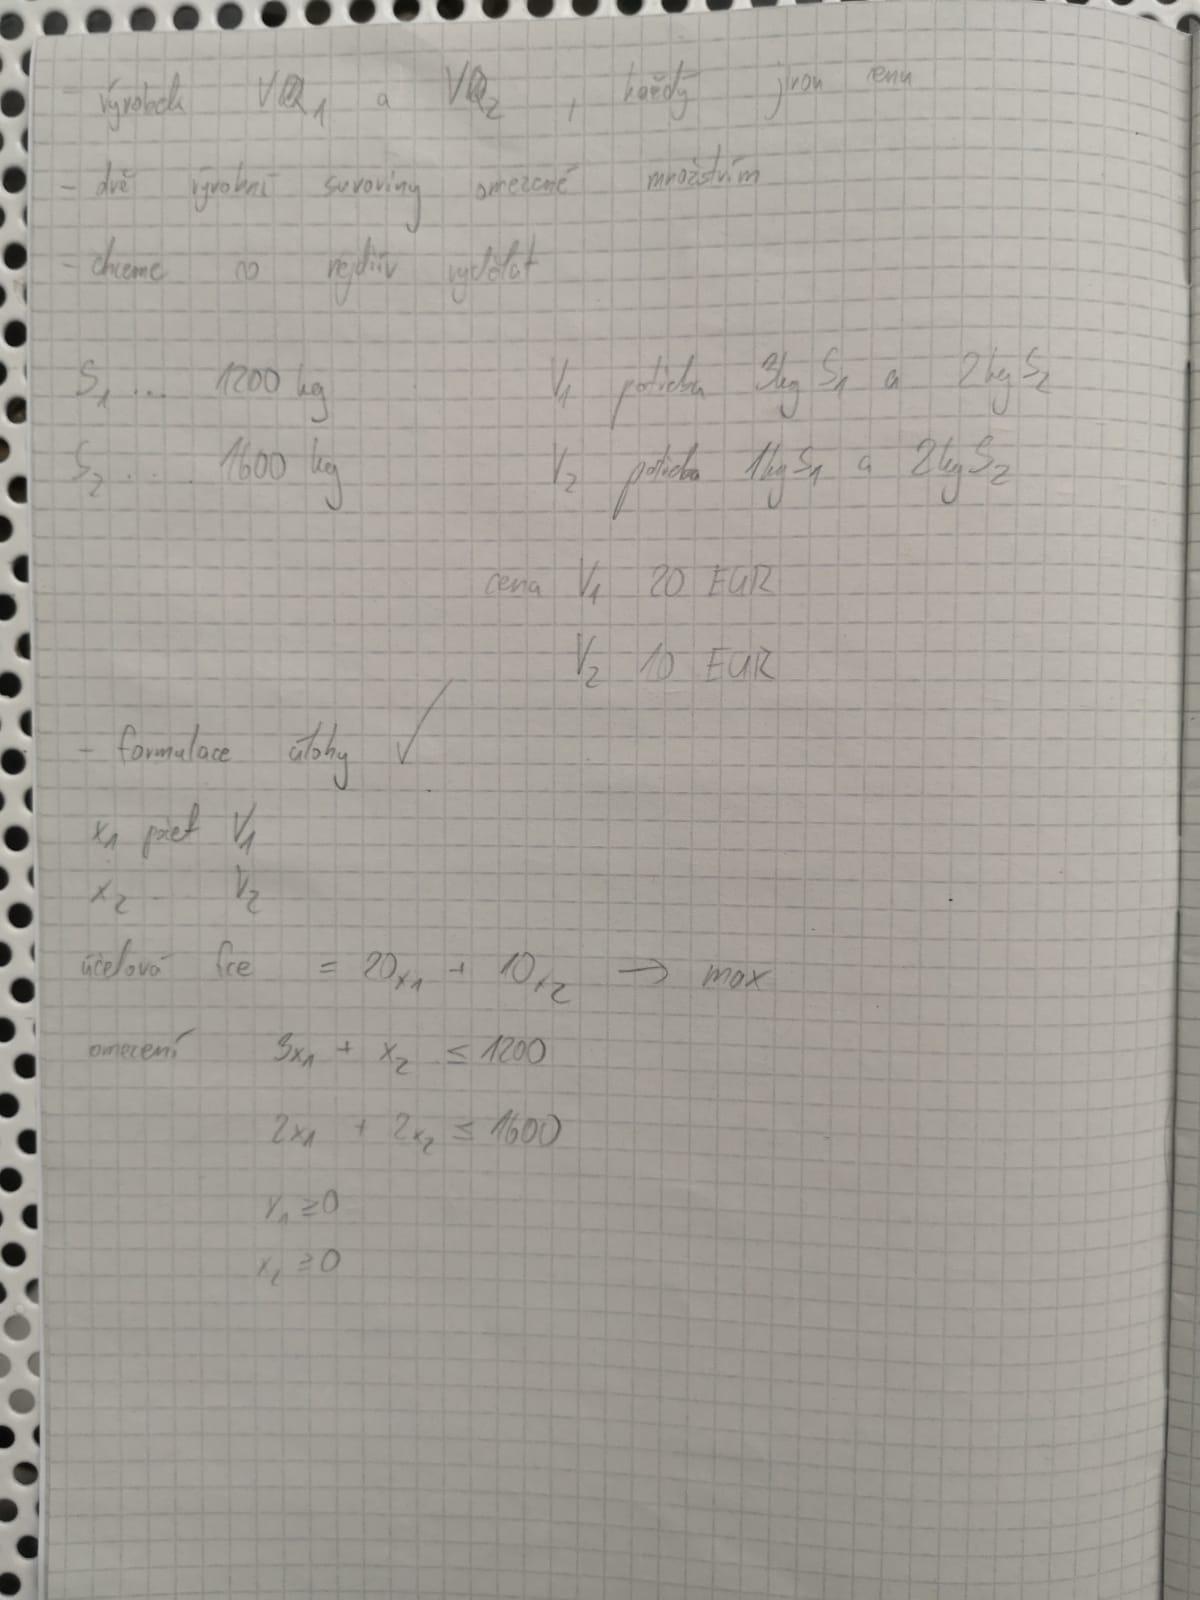 - výrobek V1 a V2, každý jinou cenu
- dvě výrobní suroviny omezené množstvím
- chceme co nejdřív vydělat
S1 ... 1200 kg V1 potřeba 3kg S1 a 2kg S2
S2 .... 1600 kg V2 potřeba 1kg S1 a 2kg S2
cena V1 20 EUR
V2 10 EUR
- formulace úlohy ✓
x1 počet V1
x2 V2
účelová fce = 20x1 + 10x2 → max
omezení 3x1 + x2 ≤ 1200
2x1 + 2x2 ≤ 1600
x1 ≥ 0
x2 ≥ 0